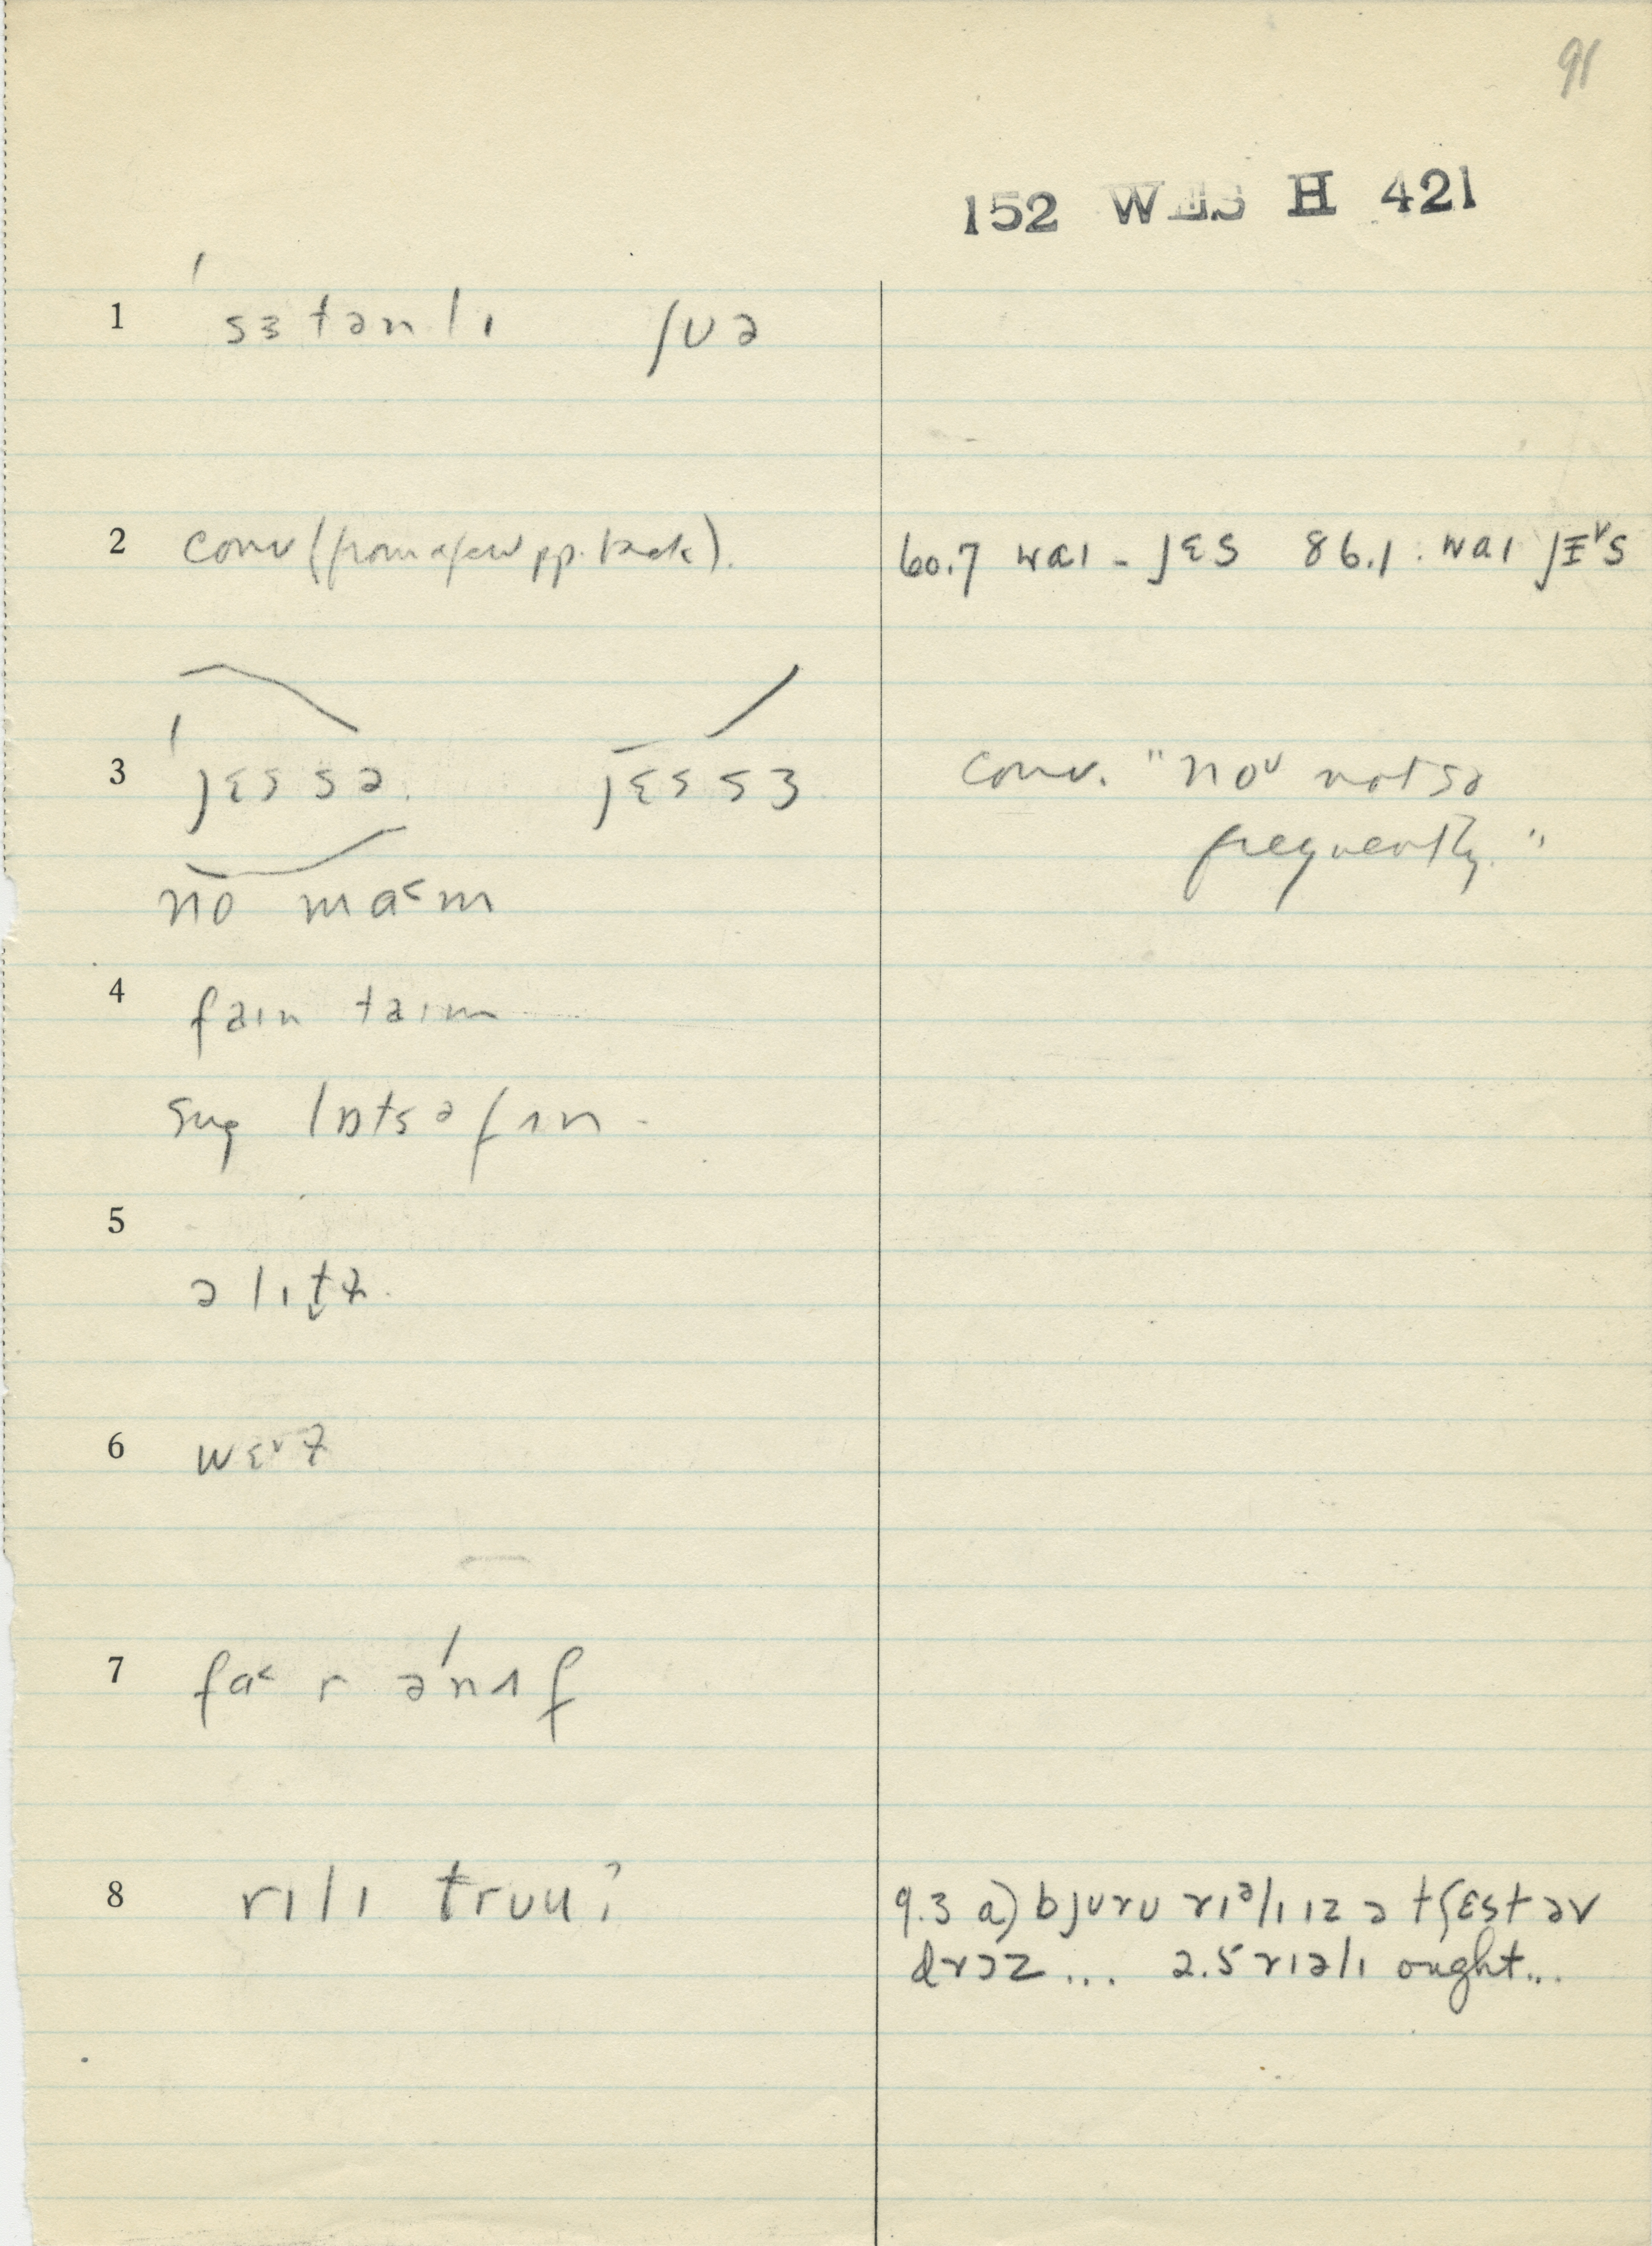 91
152 WES H 421
1 ˈsɜtənlɪ ʃʊə
2 conv (from a few pp. back). 60.7 waɪ - jɛs 86.1. waɪ jɪ˅s
3 ˈjɛs sə. jɛs sɜ conv. "no˅ not so
frequently."
no ma˂m
4 faɪn taɪm
sug lɒtsə fʌn -
5
ə lɪt̬ɫ.
6 wɛ˅ɫ
7 fa˂ r əˈnʌf
8 rɪlɪ truu? 9.3 a) bjʊrʊ rɪᵊlɪ ɪz ə tʃɛst əv
drɔz ... 2.5 rɪəlɪ ought...